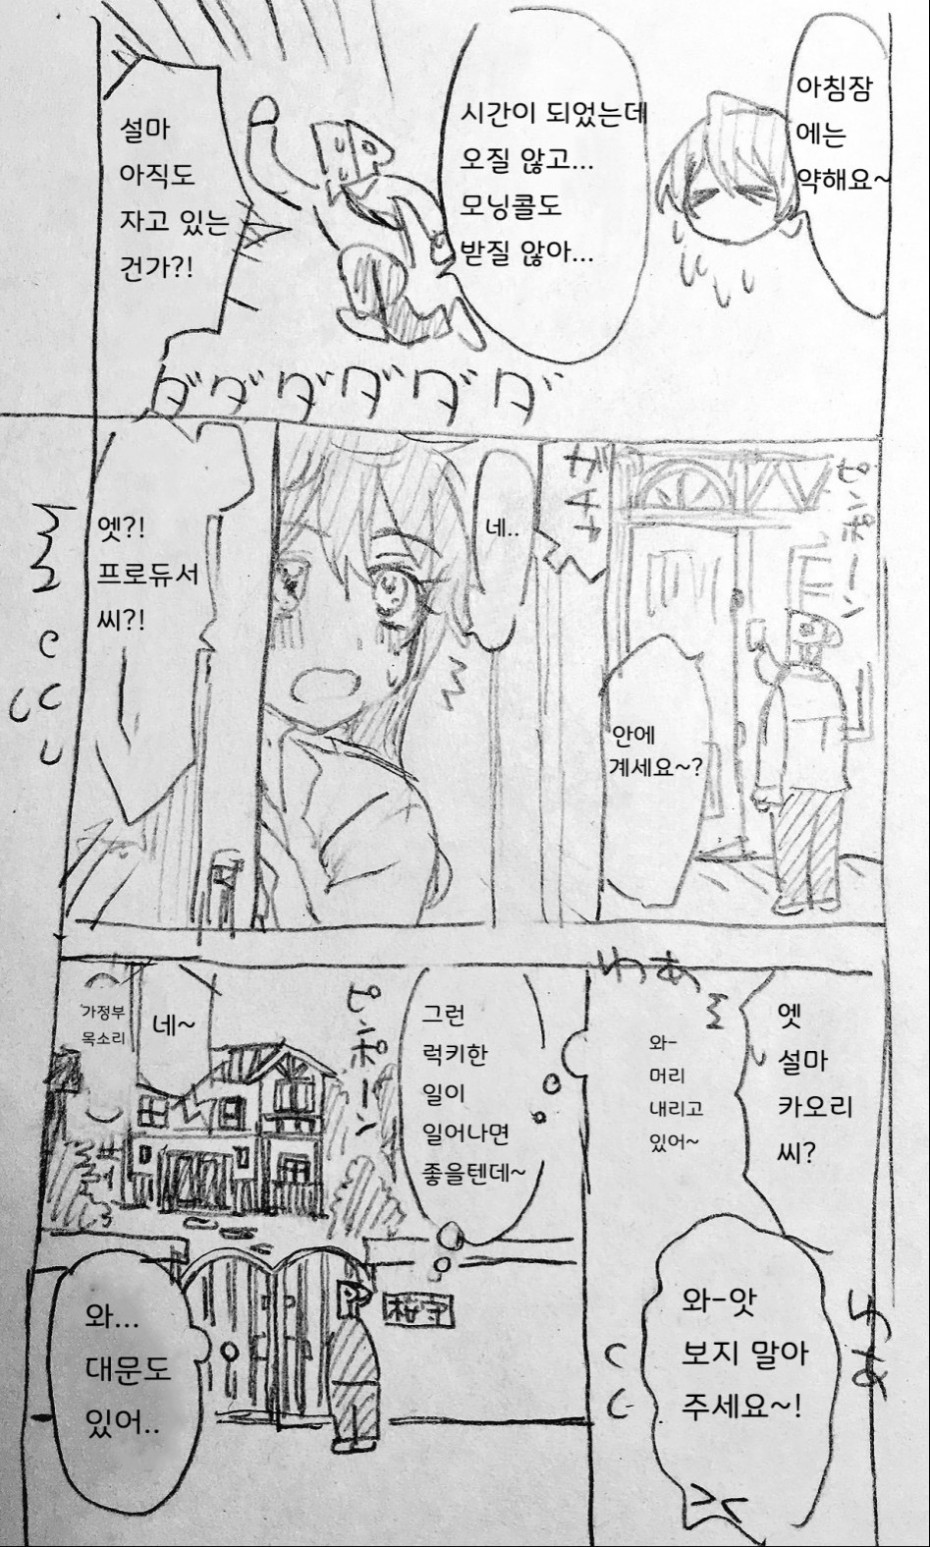 아침잠
에는
약해요~
시간이 되었는데
오질 않고...
모닝콜도
받질 않아...
설마
아직도
자고 있는
건가?!
ダダダダダダ
ピンポーン
안에
계세요~?
ガチャ
네..
엣?!
프로듀서
씨?!
엣
설마
카오리
씨?
わぁ
와-
머리
내리고
있어~
와-앗
보지 말아
주세요~!
그런
럭키한
일이
일어나면
좋을텐데~
ピンポーン
네~
가정부
목소리
와...
대문도
있어..